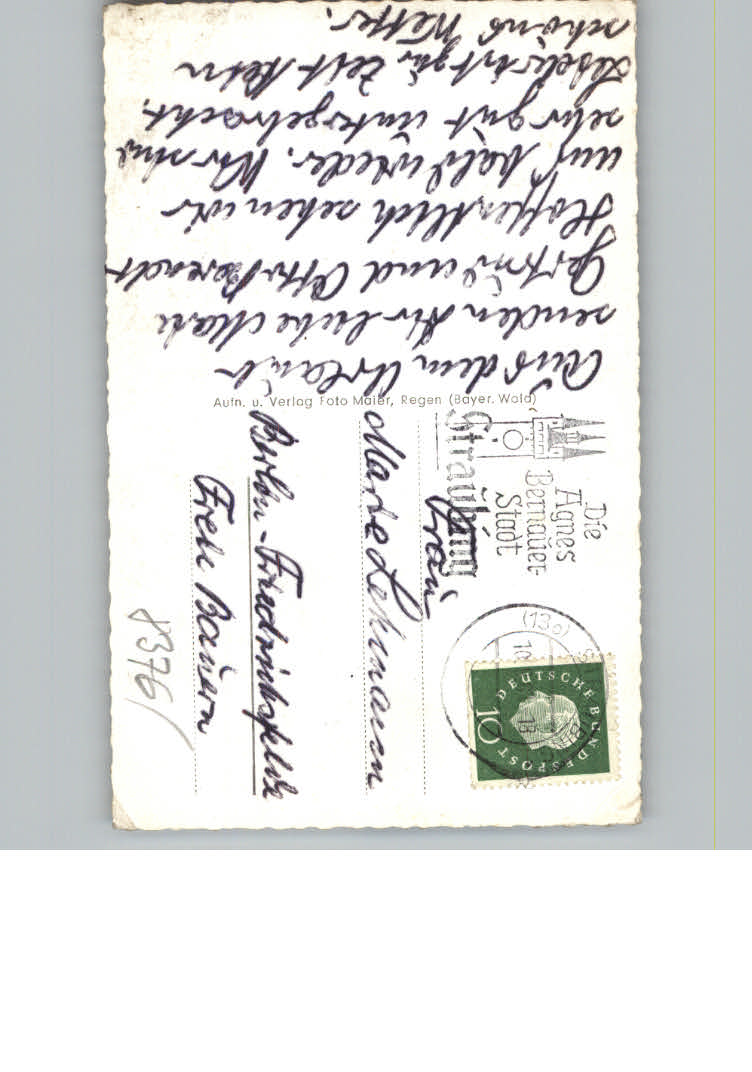 Aus dem Urlaub
senden Dir liebe Marie
Gertrud und Otto Berendt
Hoffentlich sehen wir
uns bald wieder. Wir sind
sehr gut untergebracht.
Leider ist zur Zeit kein
schöns Wetter.
Aufn. u. Verlag Foto Maier, Regen (Bayer. Wald)
Die
Agnes
Bernauer-
Stadt
Straubing
(13a)
DEUTSCHE BUNDESPOST
10
Frau
Marie Lehmann
Berlin-Friedrichsfelde
8376/